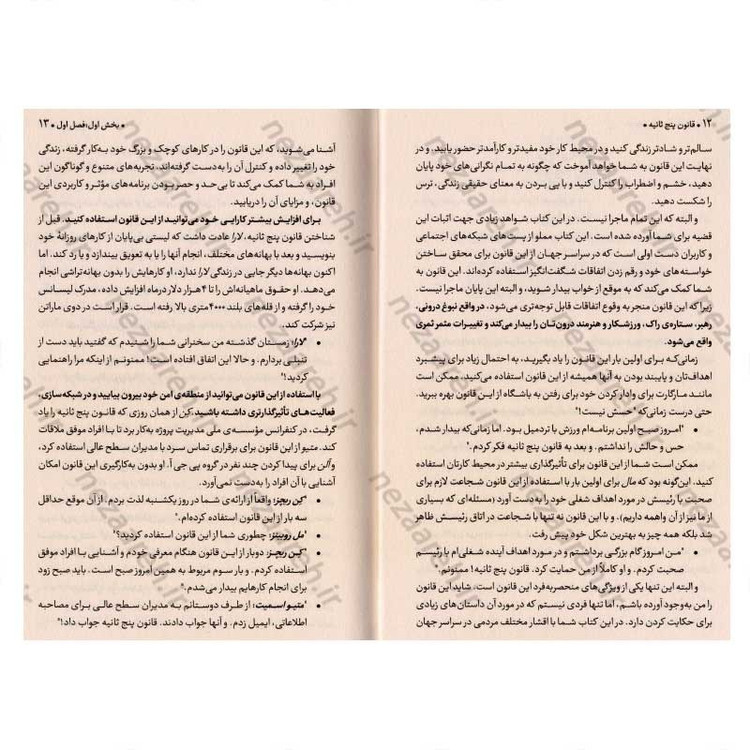 ۱۲ • قانون پنج ثانیه •
سالم‌تر و شادتر زندگی کنید و در محیط کار خود مفیدتر و کارآمدتر حضور یابید. و در
نهایت این قانون به شما خواهد آموخت که چگونه به تمام نگرانی‌های خود پایان
دهید، خشم و اضطراب را کنترل کنید و با پی بردن به معنای حقیقی زندگی، ترس
را شکست دهید.
و البته که این تمام ماجرا نیست. در این کتاب شواهد زیادی جهت اثبات این
قضیه برای شما آورده شده است. این کتاب مملو از پست‌های شبکه‌های اجتماعی
و کاربران دست اولی است که در سراسر جهان از این قانون برای محقق ساختن
خواسته‌های خود و رقم زدن اتفاقات شگفت‌انگیز استفاده کرده‌اند. این قانون به
شما کمک می‌کند که به موقع از خواب بیدار شوید، و البته این پایان ماجرا نیست.
زیرا که این قانون منجر به وقوع اتفاقات قابل توجه‌تری می‌شود، در واقع نبوغ درونی،
رهبر، ستاره‌ی راک، ورزشکار و هنرمند درون‌تان را بیدار می‌کند و تغییرات مثمر ثمری
واقع می‌شود.
زمانی‌که برای اولین بار این قانون را یاد بگیرید، به احتمال زیاد برای پیشبرد
اهداف‌تان و پایبند بودن به آنها همیشه از این قانون استفاده می‌کنید، ممکن است
مانند مارگارت برای وادار کردن خود برای رفتن به باشگاه از این قانون بهره ببرید.
حتی درست زمانی‌که "حسش نیست"!
• "امروز صبح اولین برنامه‌ام ورزش با تردمیل بود. اما زمانی‌که بیدار شدم،
حس و حالش را نداشتم. و بعد به قانون پنج ثانیه فکر کردم."
ممکن است شما از این قانون برای تأثیرگذاری بیشتر در محیط کارتان استفاده
کنید. این‌گونه بود که مال برای اولین بار با استفاده از این قانون شجاعت لازم برای
صحبت با رئیسش در مورد اهداف شغلی خود را به‌دست آورد (مسئله‌ای که بسیاری
از ما نیز از آن واهمه داریم)، و با این قانون نه تنها با شجاعت در اتاق رئیسش ظاهر
شد بلکه همه چیز به بهترین شکل خود پیش رفت.
• "من امروز گام بزرگی برداشتم و در مورد اهداف آینده شغلی‌ام با رئیسم
صحبت کردم. و او کاملاً از من حمایت کرد. قانون پنج ثانیه! ممنونم."
و البته این تنها یکی از ویژگی‌های منحصربه‌فرد این قانون است، شاید این قانون
را من به‌وجود آورده باشم، اما تنها فردی نیستم که در مورد آن داستان‌های زیادی
برای حکایت کردن دارد. در این کتاب شما با اقشار مختلف مردمی در سراسر جهان
• بخش اول؛ فصل اول • ۱۳
آشنا می‌شوید، که این قانون را در کارهای کوچک و بزرگ خود به‌کار گرفته‌اند، زندگی
خود را تغییر داده و کنترل آن را به‌دست گرفته‌اند. تجربه‌های متنوع و گوناگون این
افراد به شما کمک می‌کند تا بی‌حد و حصر بودن برنامه‌های مؤثر و کاربردی این
قانون، و مزایای آن را دریابید.
برای افزایش بیشتر کارایی خود می‌توانید از این قانون استفاده کنید. قبل از
شناختن قانون پنج ثانیه، لارا عادت داشت که لیستی بی‌پایان از کارهای روزانهٔ خود
بنویسید و بعد با بهانه‌های مختلف، انجام آنها را یا به تعویق بیندازد و یا رد کند. اما
اکنون بهانه‌ها دیگر جایی در زندگی لارا ندارد، او کارهایش را بدون بهانه‌تراشی انجام
می‌دهد. او حقوق ماهیانه‌اش را تا ۴هزار دلار در ماه افزایش داده، مدرک لیسانس
خود را گرفته و از قله‌های بلند ۴۰۰۰متری بالا رفته است. قرار است در دوی ماراتن
نیز شرکت کند.
• "لارا: زمستان گذشته من سخنرانی شما را شنیدم که گفتید باید دست از
تنبلی بردارم. و حالا این اتفاق افتاده است! ممنونم از اینکه مرا راهنمایی
کردید!"
با استفاده از این قانون می‌توانید از منطقه‌ی امن خود بیرون بیایید و در شبکه‌سازی،
فعالیت‌های تأثیرگذارتری داشته باشید. کن از همان روزی که قانون پنج ثانیه را یاد
گرفت، در کنفرانس مؤسسه‌ی ملی مدیریت پروژه به‌کار برد تا با افراد موفق ملاقات
کند. متیو از این قانون برای برقراری تماس سرد با مدیران سطح عالی استفاده کرد،
و آلن برای پیدا کردن چند نفر در گروه پی جی آ. او بدون به‌کارگیری این قانون امکان
آشنایی با آن افراد را به‌دست نمی‌آورد.
• "کن ریچز: واقعاً از ارائه‌ی شما در روز یکشنبه لذت بردم. از آن موقع حداقل
سه بار از این قانون استفاده کرده‌ام."
• "مل رابینز: چطوری شما از این قانون استفاده کردید؟"
• "کن ریچز: دوبار از این قانون هنگام معرفی خودم و آشنایی با افراد موفق
استفاده کردم. و بار سوم مربوط به همین امروز صبح است. باید صبح زود
برای انجام کارهایم بیدار می‌شدم."
• "متیو اسمیت: از طرف دوستانم به مدیران سطح عالی برای مصاحبه
اطلاعاتی، ایمیل زدم. و آنها جواب دادند. قانون پنج ثانیه جواب داد!"
nezaareh.ir